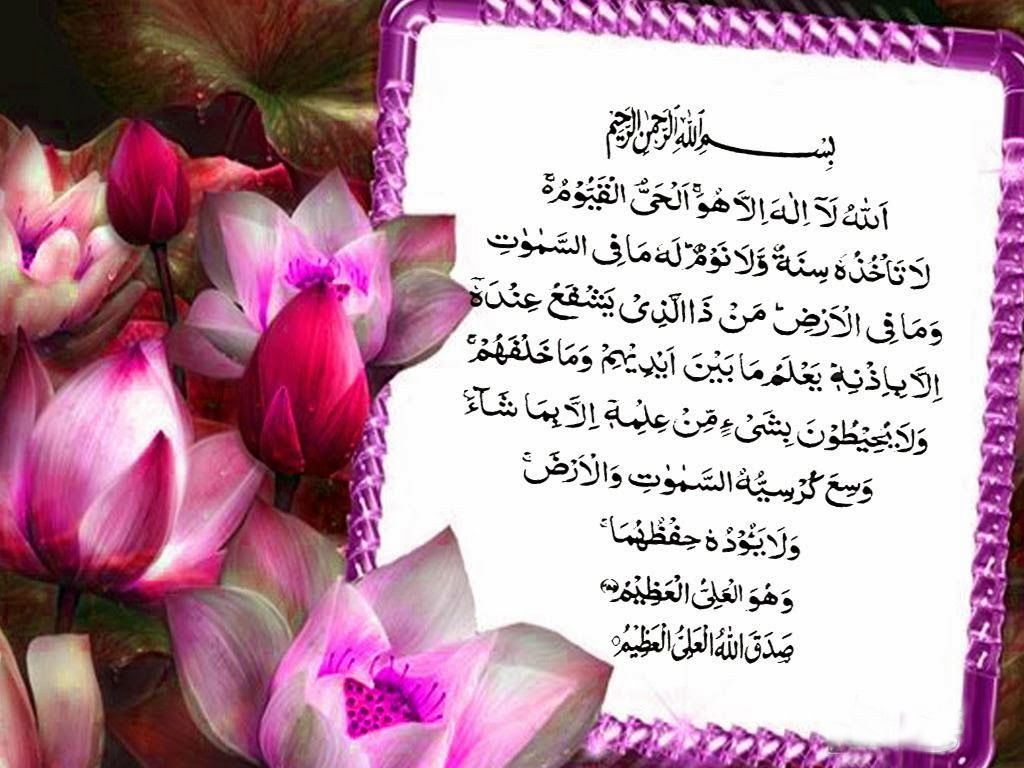 بِسْمِ اللهِ الرَّحْمٰنِ الرَّحِيْمِ
اَللهُ لَآ اِلٰهَ اِلَّا هُوَۚ اَلْحَیُّ الْقَيُّوْمُ ۚ
لَا تَاْخُذُهٗ سِنَةٌ وَّلَا نَوْمٌ ؕ لَهٗ مَا فِی السَّمٰوٰتِ
وَمَا فِی الْاَرْضِ ؕ مَنْ ذَا الَّذِیْ يَشْفَعُ عِنْدَهٗٓ
اِلَّا بِاِذْنِهٖ ؕ يَعْلَمُ مَا بَيْنَ اَيْدِيْهِمْ وَمَا خَلْفَهُمْ ۚ
وَلَا يُحِيْطُوْنَ بِشَیْءٍ مِّنْ عِلْمِهٖٓ اِلَّا بِمَا شَآءَ ۚ
وَسِعَ كُرْسِيُّهُ السَّمٰوٰتِ وَالْاَرْضَ ۚ
وَلَا يَـُٔوْدُهٗ حِفْظُهُمَا ۚ
وَهُوَ الْعَلِیُّ الْعَظِيْمُ ﴿۲۵۵﴾
صَدَقَ اللهُ الْعَلِیُّ الْعَظِيْمُ